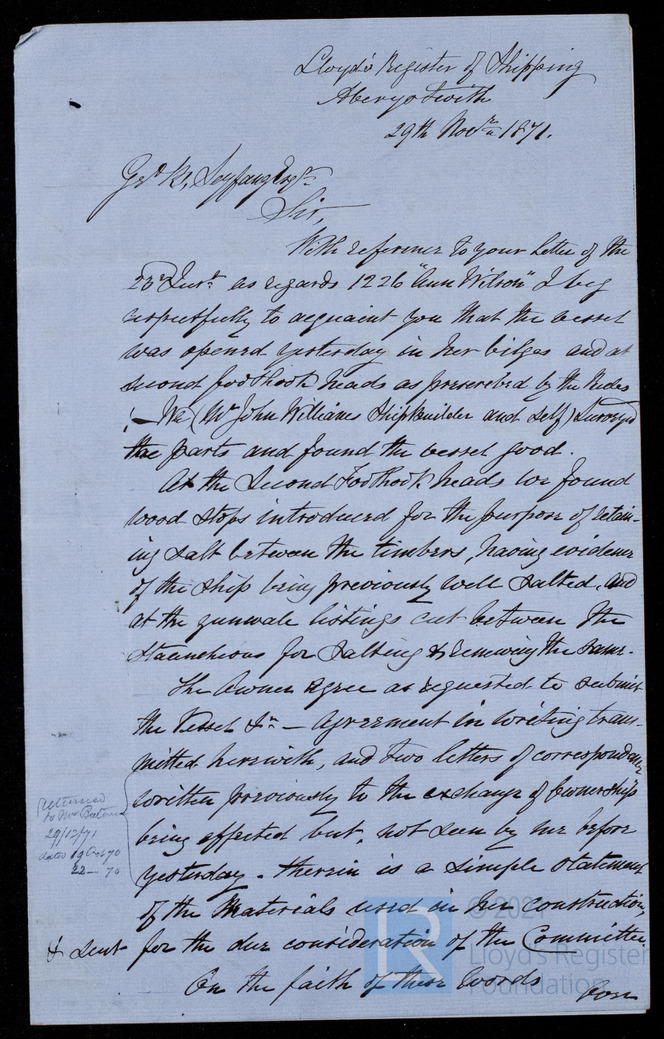 Lloyd's Register of Shipping
Aberystwith
29th Novr 1871.
Geo B. Seyfang Esqr
Sir,
With reference to your letter of the
23rd Inst. as regards 1226 "Ann Wilson" I beg
respectfully to acquaint you that the vessel
was opened yesterday in her bilges and at
second foothook heads as prescribed by the Rules
:— We (Mr John Williams Shipbuilder and self) Surveyed
the parts and found the vessel good.
At the Second Foothook heads we found
wood stops introduced for the purpose of retain-
ing salt between the timbers, having evidence
of the ship being previously well salted, and
at the gunwale listings cut between the
stauncheons for salting & renewing the same.
The Owners agree as requested to submit
the Vessel &c — Agreement in writing trans-
mitted herewith, and two letters of correspondence
written previously to the exchange of ownership
being effected but, not seen by me before
yesterday - therein is a simple statement
of the Materials used in her construction,
& sent for the due consideration of the Committee.
On the faith of these words
returned
to Mr
29/12/71
dated 19 Oct 70
22 — 70
© 2021
Lloyd's Register
Foundation